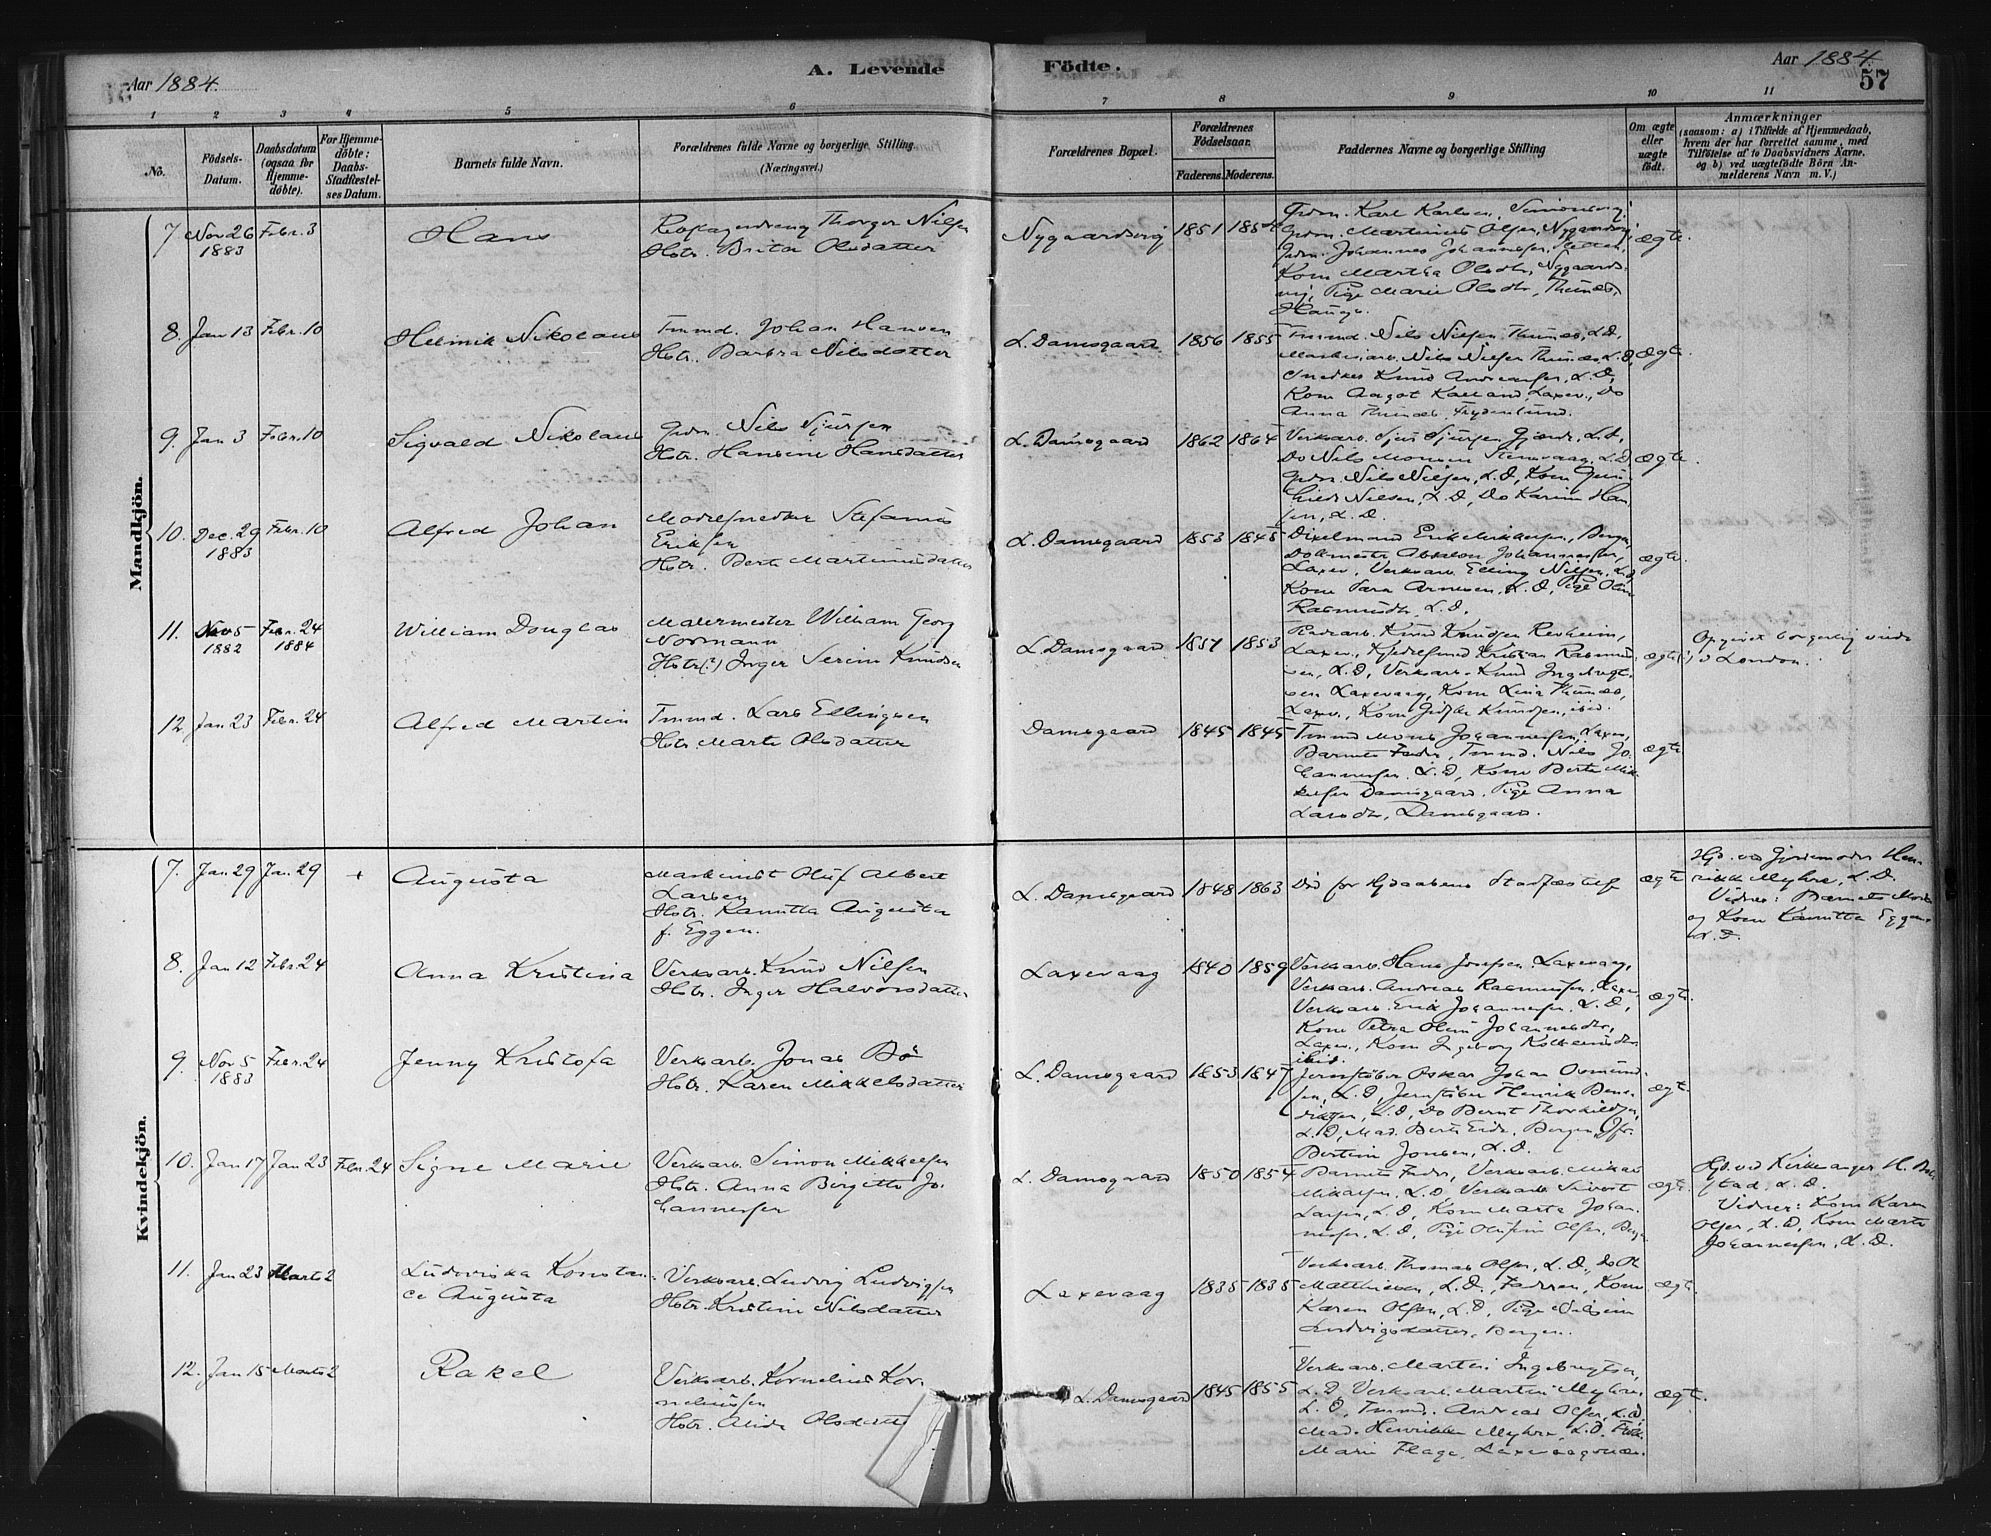 Aar 1884.
A. Levende
Födte.
Aar 1884.
57
1 2 3 4 5 6 7 8 9 10 11
No.
Födsels-Datum.
Daabsdatum (ogsaa for Hjemmedöbte).
For Hjemmedöbte: Daabs-Stadfæstelses Datum.
Barnets fulde Navn.
Forældrenes fulde Navne og borgerlige Stilling (Næringsvei.)
Forældrenes Bopæl.
Forældrenes Födselsaar.
Faderens. Moderens.
Faddernes Navne og borgerlige Stilling
Om ægte eller uægte födt.
Anmærkninger
(saasom: a) i Tilfælde af Hjemmedaab, hvem der har forrettet samme, med Tilföielse af to Daabsvidners Navne, og b) ved uægtefödte Börn Anmelderens Navn m. V.)
Mandkjön.
7. Nov 26 1883 Febr. 3
Hans
Thorger Nilsen
Hstr. Brita Olsdatter
Nygaardsvig 1851
Gdm. Karl Karlsen, Simonsvig,
Gdm. Martinus Olsen, Nygaardsvig,
Gdm. Johannes Johannessen,
Kone Martha Olsdtr, Nygaards-
vig, Pige Marie Olsdtr,
ægte.
8. Jan 13 Febr. 10
Helmik Nikolaus
Tmmd. Johan Hansen
Hstr. Barbra Nilsdatter
L. Damsgaard 1856 1855
Tmmd. Nils Nilsen Thunæs, L.D.
Nils Nilsen Thunæs, L.D.
Snedker Knud Andreassen, L.D.
Kone Aagot Kalland, Laxev., Do
Anna Thunæs, Frydenlund.
ægte.
9. Jan 3 Febr. 10
Sigvald Nikolaus
Gdm. Nils Sjursen
Hstr. Hansine Hansdatter
L. Damsgaard 1862 1864
Verksarb. Sjur Sjursen Gjærde, L.D,
Do Nils Monsen Stensvaag, L.D,
Nils Nilsen, L.D, Kone Gun-
hild Nilsen, L.D, Do Karine Han-
sen, L.D.
ægte.
10. Dec. 29 1883 Febr. 10
Alfred Johan
Modelsnedker Stefanus
Eriksen
Hstr. Berte Martinusdatter
L. Damsgaard 1853 1845
Erik Mikkelsen, Bergen,
Dokmester Absalon Johannessen,
Laxev., Verksarb. Elling Nilsen, L.D,
Kone Sara Arnesen, L.D, Pige Oline
Rasmusdtr, L.D.
ægte
11. Nov 5 1882 Febr. 24 1884
William Douglas
Malermester William Georg
Normann
Hstr(?) Inger Serine Knudsen
L. Damsgaard 1857 1853
Knud Knudsen Revheim,
Laxev., Kjedelsmed Kristian Rasmus-
sen, L.D, Verksarb. Knud Ingebrigt-
sen Laxevaag, Kone Lina Thunæs,
Laxev., Kone Knudsen, ibid.
ægte(?)
Opgivet borgerlig viede
i London.
12. Jan 23 Febr. 24
Alfred Martin
Tmmd. Lars Ellingsen
Hstr. Marte Olsdatter
Damsgaard 1845 1845
Tmmd Mons Johannessen, Laxev,
Barnets Fader, Tmmd. Nils Jo-
hannessen, L.D, Kone Berte Mik-
kelsen Damsgaard, Pige Anna
Larsdtr, Damsgaard.
ægte
Kvindekjön.
7. Jan 29 Jan. 29 +
Augusta
Maskinist Oluf Albert
Larsen
Hstr. Kamitta Augusta
f. Eggen.
L. Damsgaard 1848 1863
Död før Hjdaabens Stadfæstelse
ægte
Hjd. ved Gjordemoder Hen-
rikke Myhre, L.D.
Vidner: Barnets Moder
og Kone Kamitta Eggen
L.D.
8. Jan 12 Febr. 24
Anna Kristina
Verksarb. Knud Nilsen
Hstr. Inger Halvorsdatter
Laxevaag 1840 1859
Verksarb. Hans Josefsen, Laxevaag,
Verksarb. Andreas Rasmussen, Laxev,
Verksarb. Erik Johannessen, L.D,
Kone Petra Oline Johannesdtr,
Laxev., Kone Ingeborg
ibid.
ægte.
9. Nov 5 1883 Febr. 24
Jenny Kristofa
Verksarb. Jonas Bö
Hstr. Karen Mikkelsdatter
L. Damsgaard 1853 1847
Jernstöber Oskar Johan Osmund-
sen, L.D, Jernstöber Henrik Bene-
diktsen, L.D, Do Bernt Thorkildsen,
L.D, Mad. Berte Eide, Bergen, Jfr.
Bertine Jonsen, L.D.
ægte
10. Jan 17 Jan 23 Febr. 24
Signe Marie
Verksarb. Simon Mikkelsen
Hstr. Anna Bergitte Jo-
hannessen
L. Damsgaard 1850 1854
Barnets Fader, Verksarb. Mikal
Mikalsen, L.D, Verksarb Sivert
Larsen, L.D, Kone Marta Johan-
nessen, L.D, Pige Olufine Olsen, Bergen
ægte.
Hjd. ved Kirkesanger H. Bol-
stad, L.D.
Vidner: Kone Karen
Olsen, L.D, Kone Marte
Johannessen, L.D.
11. Jan 23 Marts 2
Ludoviska Konstan-
ce Augusta
Verksarb. Ludvig Ludvigsen
Hstr. Kristine Nilsdatter
Laxevaag 1835 1835
Verksarb. Thomas Olsen, L.D,
Matthiesen, L.D, Faderen, Kone
Karen Olsen, L.D, Pige
Ludvigsdatter, Bergen.
ægte.
12. Jan 15 Marts 2
Rakel
Verksarb. Kornelius Kor-
neliussen
Hstr. Alida Olsdatter
L. Damsgaard 1845 1855
Verksarb. Martin Ingebrigtsen,
L.D, Verksarb. Martin Myhre,
L.D, Tmmd. Andreas Olsen, L.D,
Mad. Henrikke Myhre, L.D,
Marie Flage, Laxevaagnæs.
ægte.